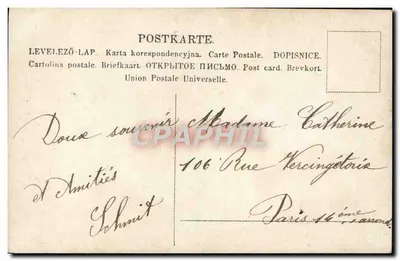 POSTKARTE.
LEVELEZŐ-LAP. Karta korespondencyjna. Carte Postale. DOPISNICE.
Cartolina postale. Briefkaart. ОТКРЫТОЕ ПИСЬМО. Post card. Brevkort.
Union Postale Universelle.
Doux souvenir
et Amitiés
Schmit
Madame Catherine
106 Rue Vercingétorix
Paris 14ème arrond.
CPAPHIL